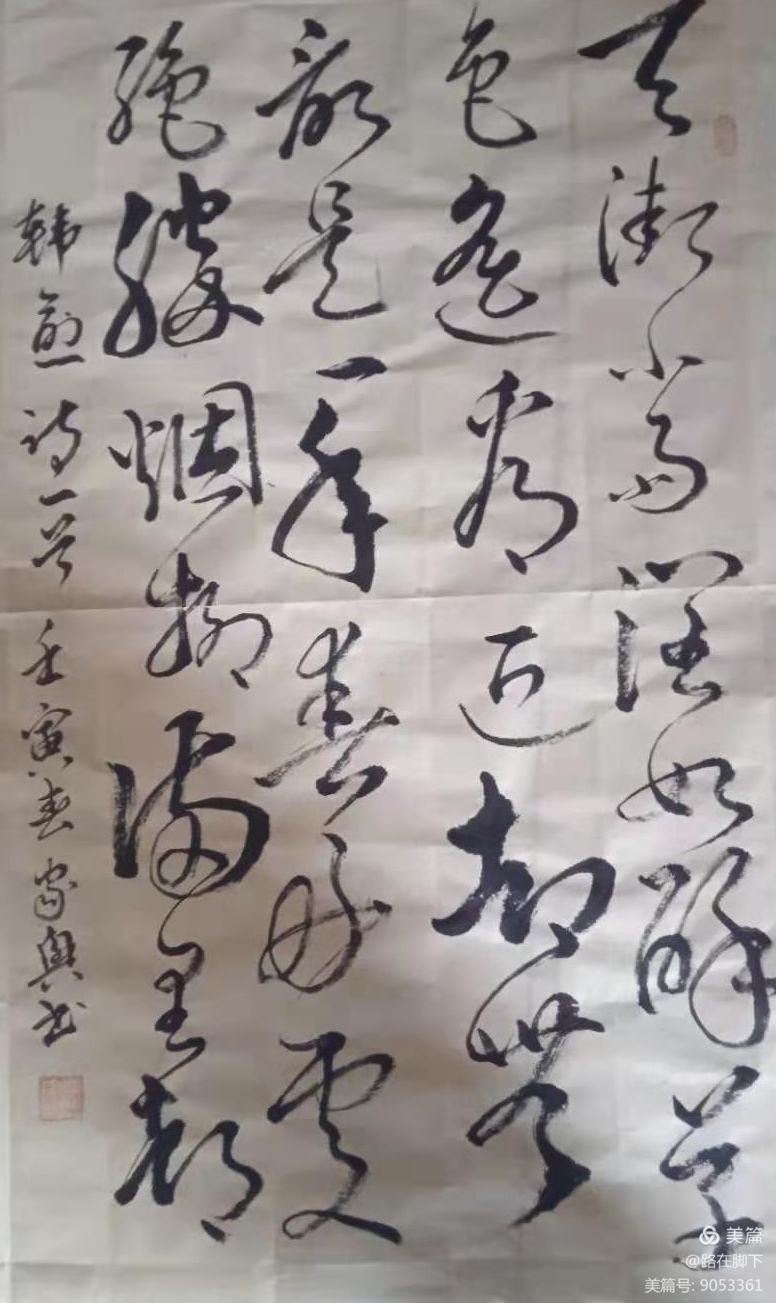 天街小雨潤如酥草
色遥看近却無
最是一年春好處
絶勝烟柳滿皇都
韩愈诗一首 壬寅春 家興书
美篇
@路在脚下
美篇号: 9053361